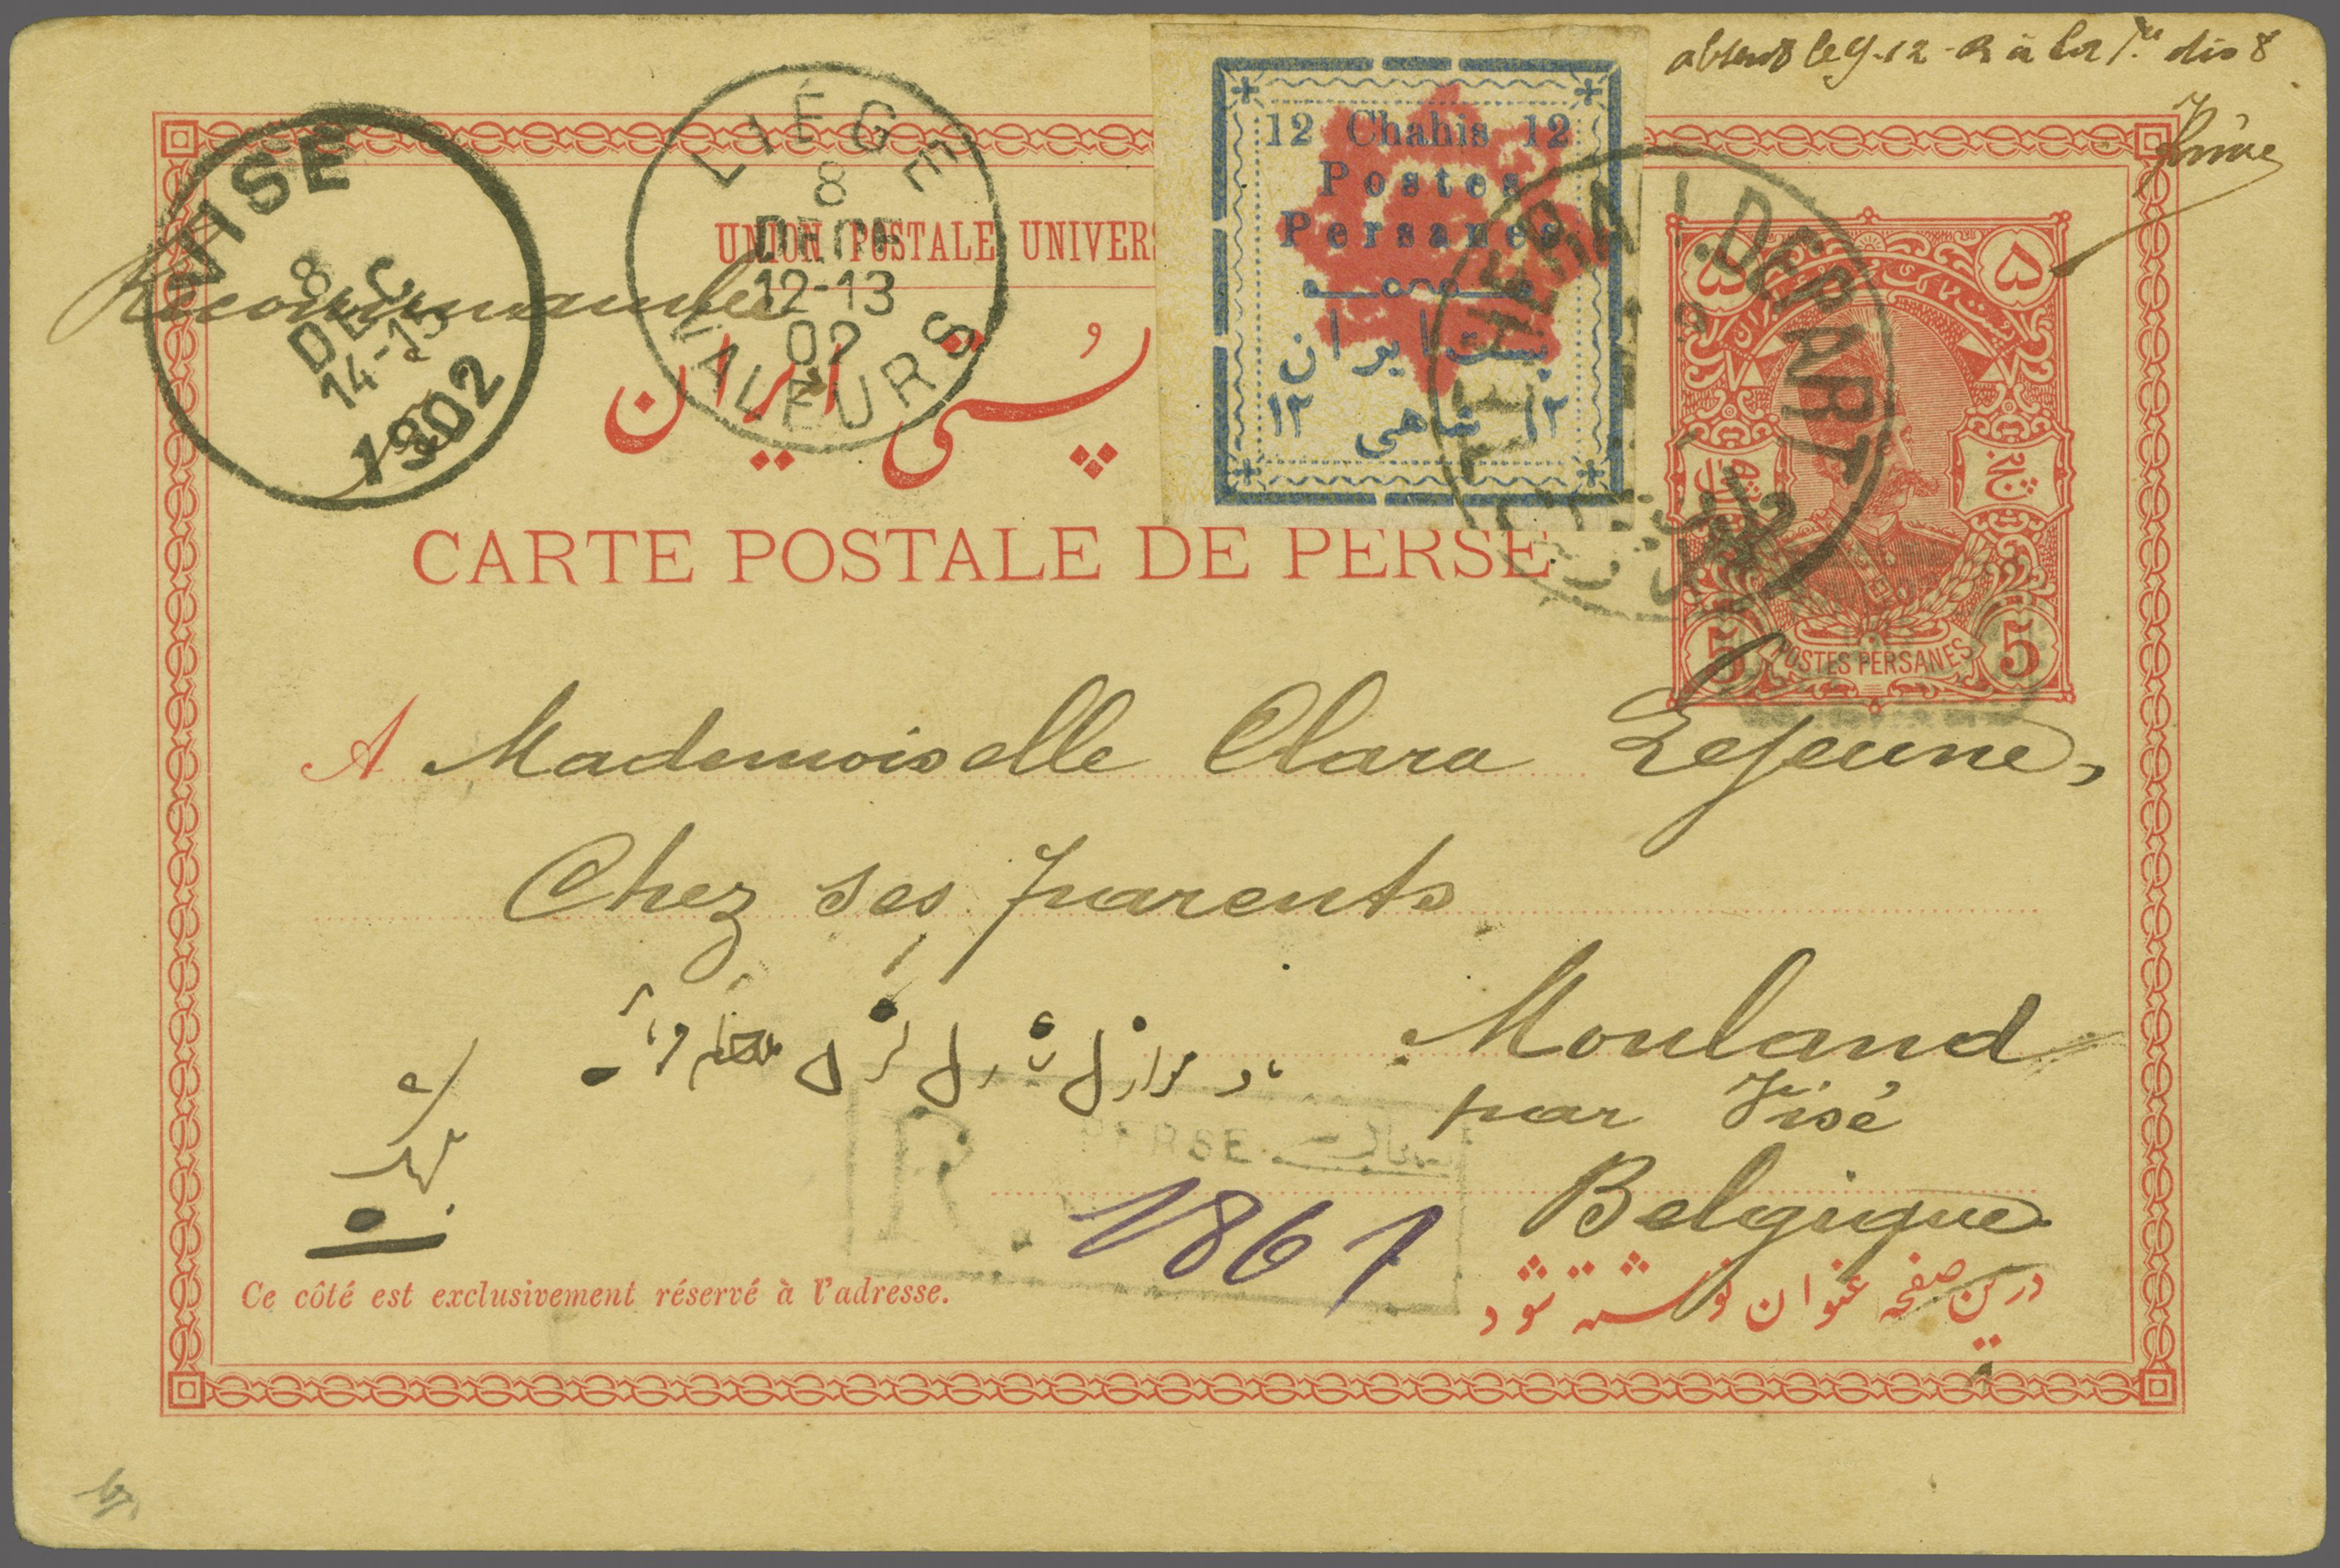 absent le 9-12-2 à la 1re dis
VISÉ
8
DEC
14-15
1902
LIÉGE
8
DÉCE
12-13
02
VALEURS
Recommandée
UNION POSTALE UNIVERS
پستی ایران
12 Chahis 12
Postes
Persanes
پست ایران
۱۲ شاهی ۱۲
TEHERAN DEPART
۵ ۵
5 POSTES PERSANES 5
CARTE POSTALE DE PERSE
A Mademoiselle Clara Lejeune,
Chez ses parents
Mouland
par Visé
Belgique
R. PERSE
1867
Ce côté est exclusivement réservé à l'adresse.
درین صفحه عنوان نوشته شود